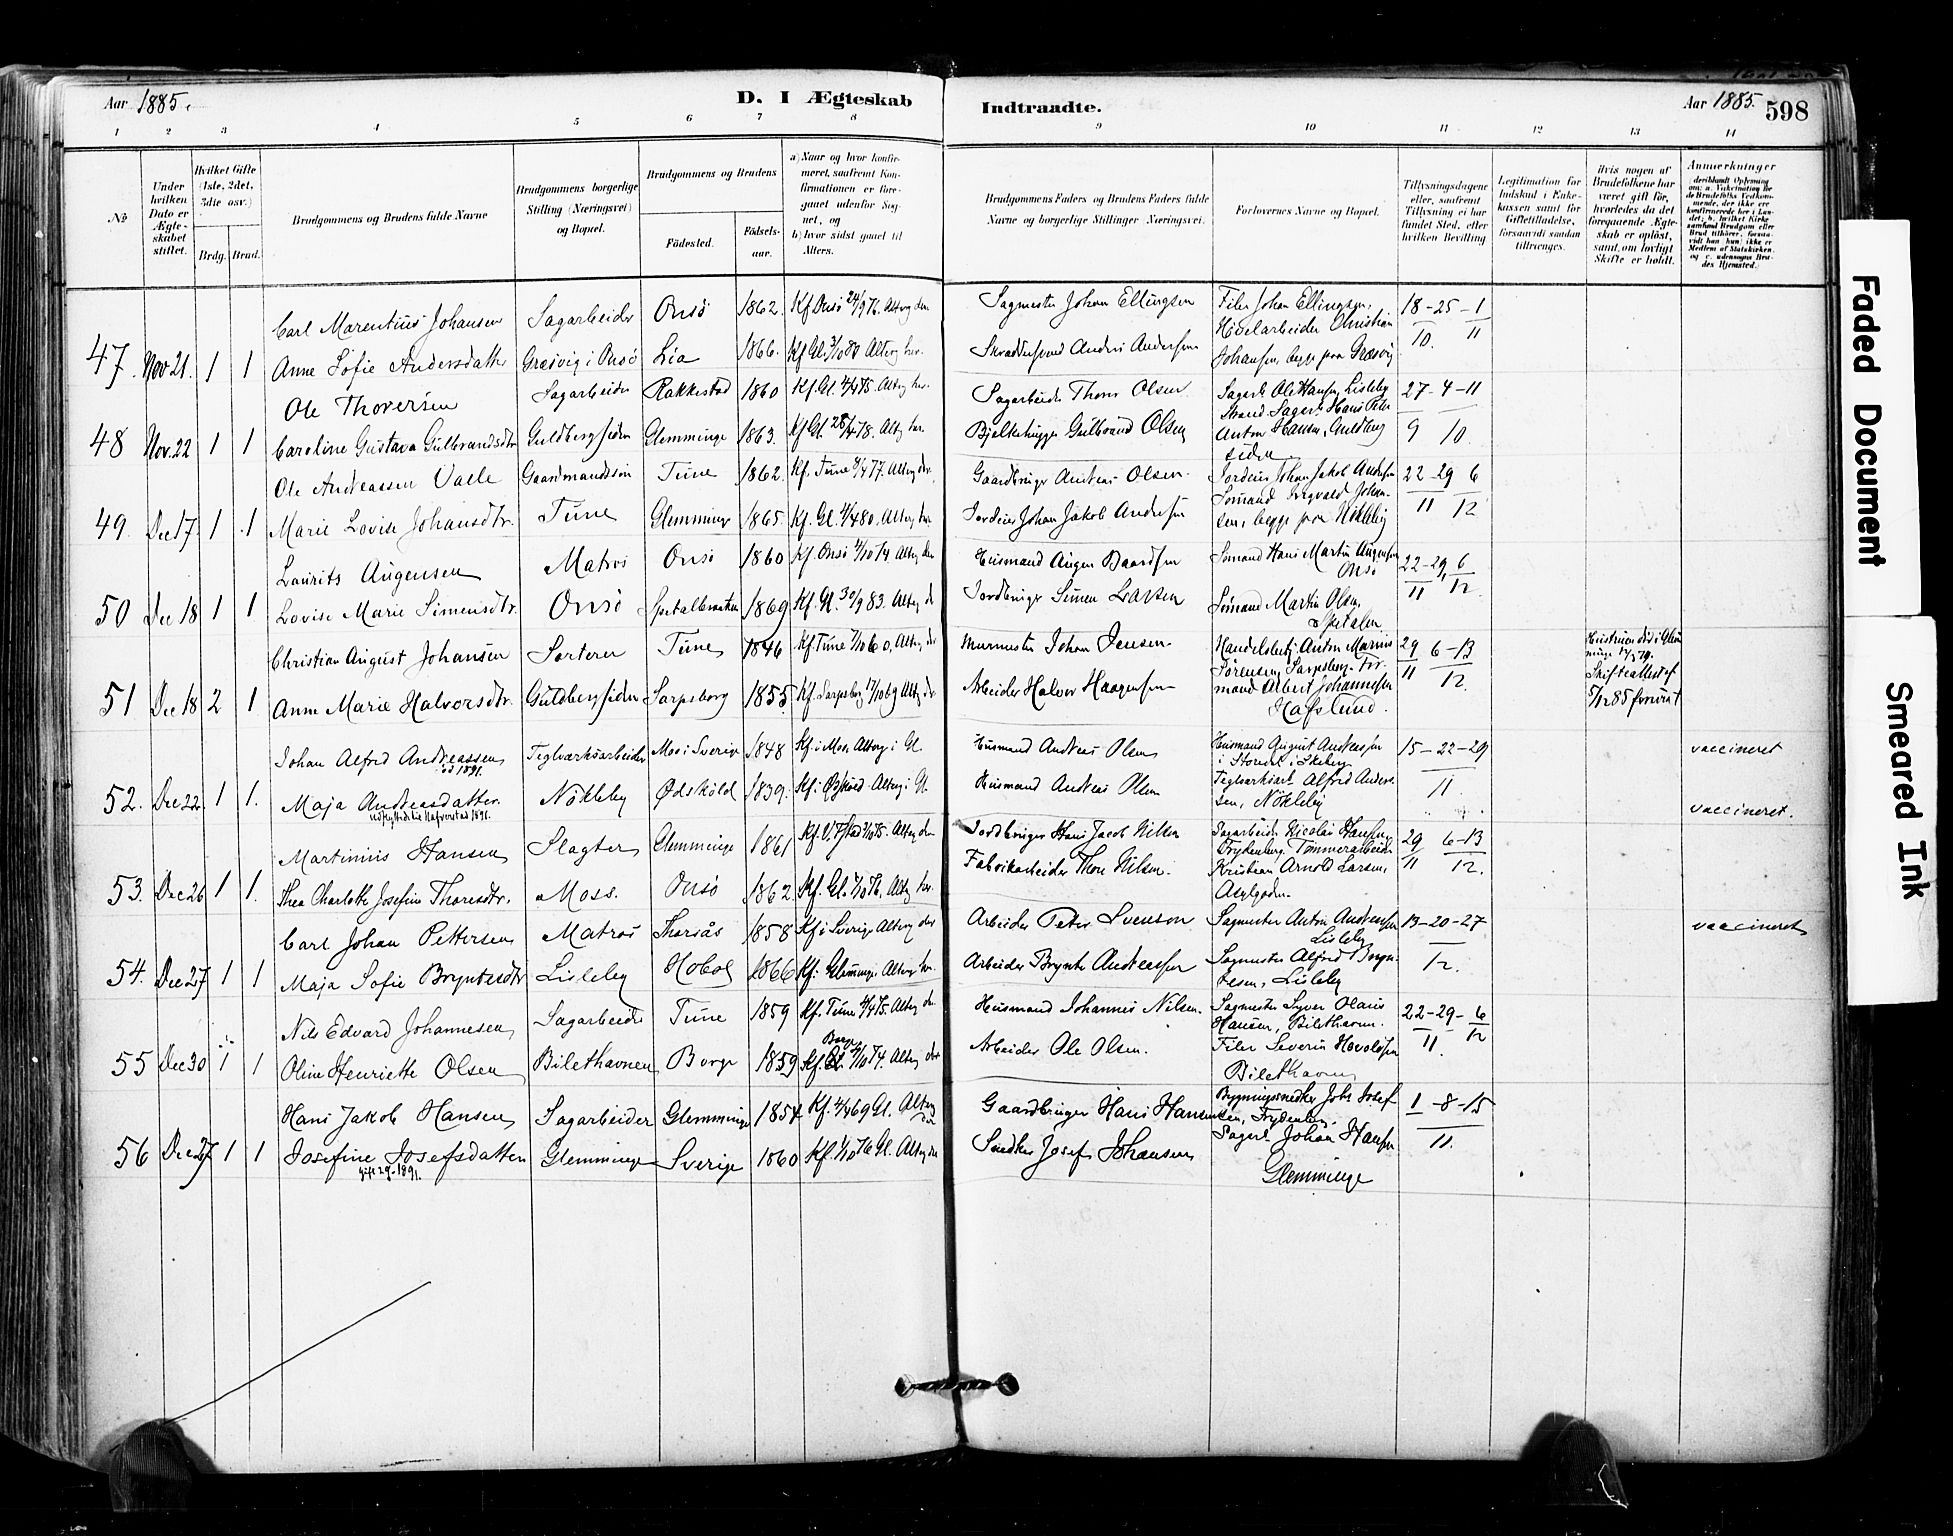 Aar 1885.
D. I Ægteskab
Indtraadte.
Aar 1885.
598
1 2 3 4 5 6 7 8 9 10 11 12 13 14
No
Under hvilken Dato er Ægteskabet stiftet.
Hvilket Gifte (1ste, 2det, 3die osv.)
Brdg. Brud.
Brudgommens og Brudens fulde Navne
Brudgommens borgerlige Stilling (Næringsvei) og Bopæl.
Brudgommens og Brudens
Födested.
Födselsaar.
a) Naar og hvor konfirmeret, saafremt Konfirmationen er foregaaet udenfor Sognet, og
b) hvor sidst gaaet til Alters.
Brudgommens Faders og Brudens Faders fulde Navne og borgerlige Stillinger Næringsvei.
Forlovernes Navne og Bopæl.
Tillysningsdagene eller, saafremt Tillysning ei har fundet Sted, efter hvilken Bevilling
Legitimation for Indskud i Enkekassen samt for Giftetilladelse, forsaavidt saadan tiltrænges.
Hvis nogen af Brudefolkene har været gift før, hvorledes da det foregaaende Ægteskab er opløst, samt, om lovligt Skifte er holdt.
Anmærkninger
47. Nov 21. 1 1
Carl Marentius Johansen
Sagarbeider
Onsö 1862. Kf Onsö 24/9 76. Alterg der
Sagmester Johan Ellingsen
Filer Johan Ellingsen,
Høvelarbeider Christian
18-25-1
10. 11
Anne Sofie Andersdatter
Græsvig i Onsö
Lia 1866. Kf Gl. 3/10 80 Alterg her.
Anders Andersen
Johansen, begge paa Græsvig
48 Nov. 22 1 1
Ole Thoversen
Sagarbeider
Rakkestad 1860 Kf. Gl. 4/4 75. Alterg her.
Sagarbeider Thover Olsen
Sagarb. Ole Hansen, Lisleby
Strand. Sagarb. Hans Peter
27-4-11
9 10
Caroline Gustava Gulbrandsdtr
Guldbergsiden
Glemminge 1863. Kf Gl. 28/4 78. Alterg her.
Bjelkehugger Gulbrand Olsen
Anton Hansen, Guldberg
siden
49. Dec 17. 1 1
Ole Andreassen Valle
Gaardmandssön
Tune 1862. Kf. Tune 8/4 77. Alterg der.
Gaardbruger Andreas Olsen
Jordeier Johan Jakob Andersen
Sömand Ingvald Johan-
22-29 6
11 12
Marie Lovise Johansdtr.
Tune
Glemminge 1865. Kf. Gl. 4/4 80. Alterg her
Jordeier Johan Jakob Andersen
sen, begge paa Nökleby
50 Dec 18 1 1
Laurits Augensen
Matros
Onsö 1860 Kf. Onsö 4/10 74. Alterg der
Husmand Augen Baardsen
Sömand Hans Martin Augensen
Onsö
22-29, 6
11 12.
Lovise Marie Simensdtr.
Onsö
1869 Kf. Gl. 30/9 83. Alterg
Jordbruger Simen Larsen
Sömand Martin Olsen,
Spetalen
51 Dec 18 2 1
Christian August Johansen
Sorterer
Tune 1846 Kf. Tune 7/10 60, Alterg der
Murmester Johan Jensen
Handelsbetj. Anton Marius
Sørensen, Sarpsborg. For-
29 6-13
11 12.
Anne Marie Halvorsdtr.
Guldbergsiden
Sarpsborg 1855. Kf. Sarpsborg 17/10 69 Alterg der
Arbeider Halvor Haagensen
mand Albert Johannesen
Hafslund.
Hustruen död i Glem
Skifteattest af
5/12 85 forevist
52. Dec 22 1 1.
Johan Alfred Andreassen
ud 1891.
Teglværksarbeider
Mos i Sverige 1848 Kf. i Mos. Alterg i Gl.
Husmand Andreas Olsen
Husmand August Andreasen
15-22-29
11.
vaccineret
Maja Andreasdatter
1891.
Nökleby
Ødsköld 1839. Kf. i Ødskold Alterg i Gl.
Husmand Andreas Olsen
Teglværksarb. Alfred Anders-
sen, Nökleby
vaccineret.
53. Dec 26 1 1.
Martinius Hansen
Slagter
Glemminge 1861
Jordbruger Hans Jacob Nilsen
Sagarbeider Nicolai Hansen,
Frydenberg. Tömmerarbeider
29 6-13
11 12.
Thea Charlotte Josefine Thoresdtr.
Moss.
Onsö 1862. Kf. Gl. 1/10 76. Alterg her.
Fabrikarbeider Thore Nilsen.
Kristian Arnold Larsen,
Asylgaden.
54. Dec 27 1 1
Carl Johan Pettersen
Matros
Thorsås 1858 Kf i Sverige Alterg der
Arbeider Peter Svenson
Sagmester Anton Andreasen
Lisleby
13-20-27
12.
vaccineret
Maja Sofie Bryntesdtr
Lisleby
Hobøl 1866 Kf. i Glemminge Alterg her.
Arbeider Brynte Andreasen
Sagmester Alfred Bryn-
tesen, Lisleby
55 Dec 30 1 1
Nils Edvard Johannesen,
Sagarbeider
Tune 1859 Kf. Tune 4/4 75. Alterg der
Husmand Johannes Nilsen.
Sagmester Syver Olaus
Hansen, Bilethavn.
22-29-6
11. 12
Oline Henriette Olsen
Bilethavnen
Borge 1859 Kf. Borge 4/10 74. Alterg der
Arbeider Ole Olsen.
Filer Severin
Bilethavn
56 Dec 27 1 1
Hans Jakob Hansen
Sagarbeider
Glemminge 1854 Kf. 4/4 69 Gl. Alterg
Gaardbruger Hans Hansen
Bygningssnedker Johs Josef
sen, Frydenberg.
1-8-15
11.
Josefine Josefsdatter
1891.
Glemminge
Sverige 1860 Kf. 1/10 76 Gl. Alterg der
Snedker Josef Johansen
Sagarb. Johan Hansen
Glemminge
Faded Document
Smeared Ink